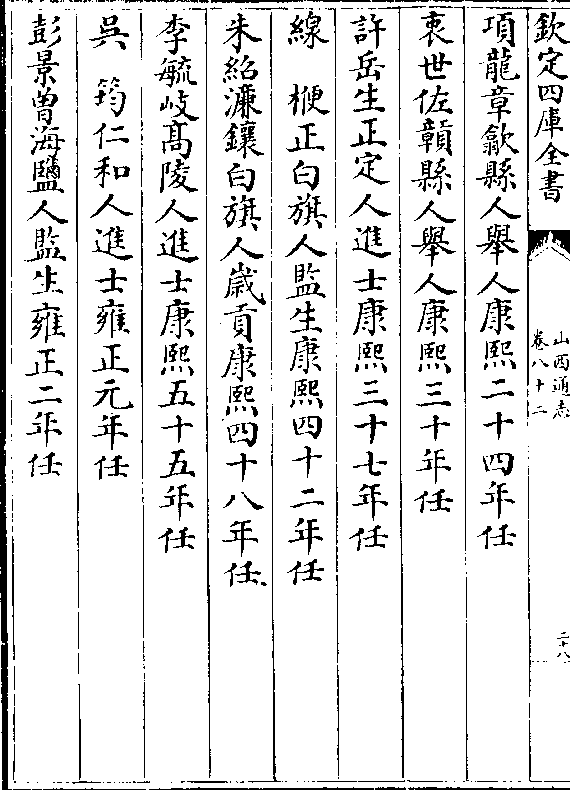 欽定四庫全書
山西通志
卷八十二
二十八
項龍章歙縣人舉人康熙二十四年任
衷世佐贛縣人舉人康熙三十年任
許岳生正定人進士康熙三十七年任
線　㮄正白旗人監生康熙四十二年任
朱紹濂鑲白旗人歲貢康熙四十八年任
李毓岐髙陵人進士康熙五十五年任
吳　筠仁和人進士雍正元年任
彭景曽海鹽人監生雍正二年任